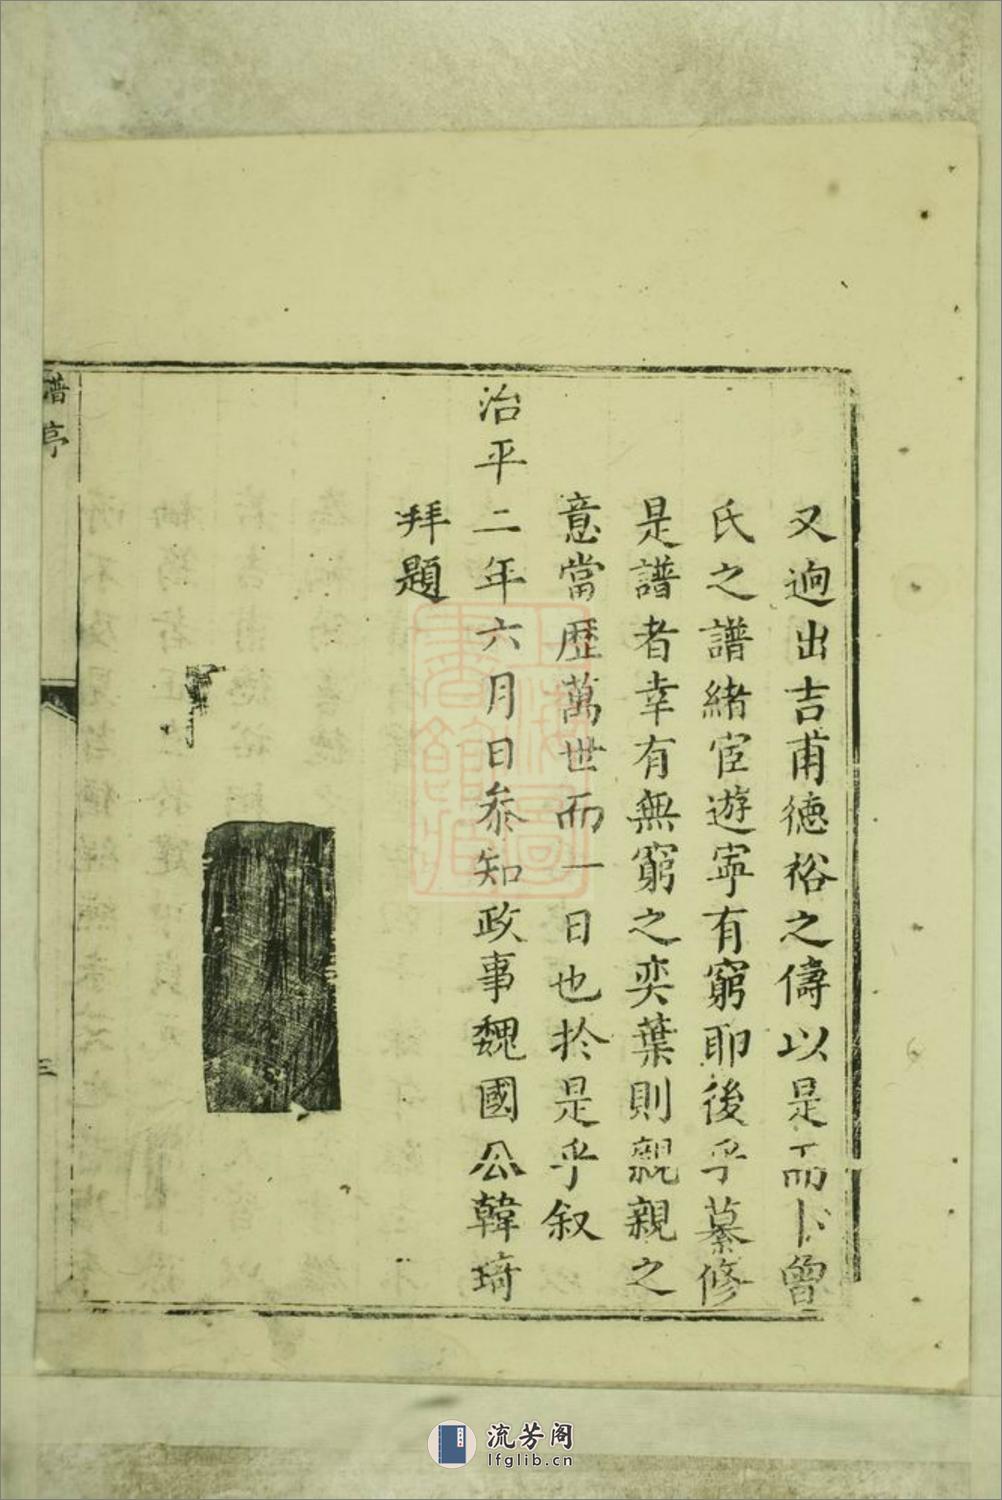 又逈出吉甫德裕之儔以是而卜曾
氏之譜緒宦遊寧有窮耶後乎纂修
是譜者幸有無窮之奕葉則親親之
意當歴萬世而一日也扵是乎叙
治平二年六月日叅知政事魏國公韓琦
拜題
譜亭
三
上海圖書館藏
流芳阁
lfglib.cn